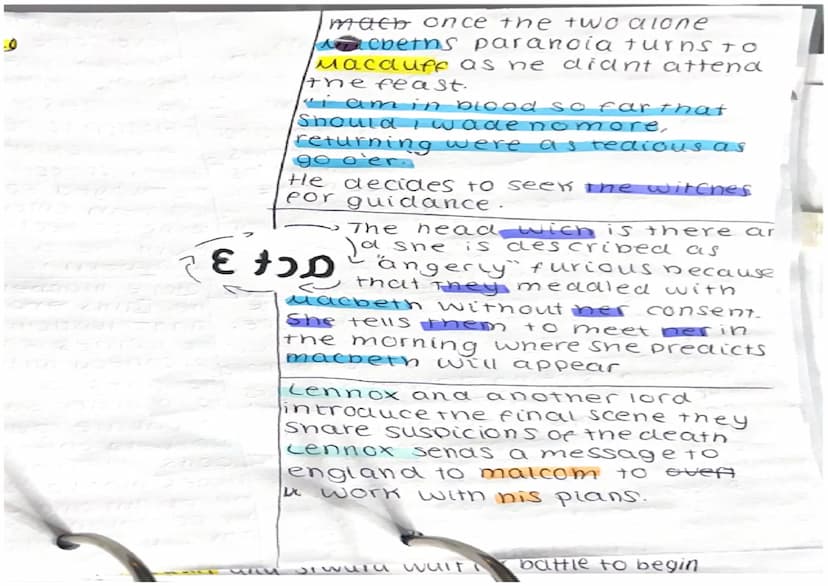 once the two alone
Macbeths paranoia turns to
Macduff as he didnt attend
the feast.
"i am in blood so far that
should i wade no more,
returning were as tedious as
go o'er."
He decides to seek the witches
for guidance.
The head wich is there an
d she is described as
"angerly" furious because
that they meddled with
Macbeth without her consent.
She tells them to meet her in
the morning where she predicts
macbeth will appear
act 3
Lennox and another lord
introduce the final scene they
share suspicions of the death
Lennox sends a message to
england to malcom to
work with his plans.
and siward wait for battle to begin